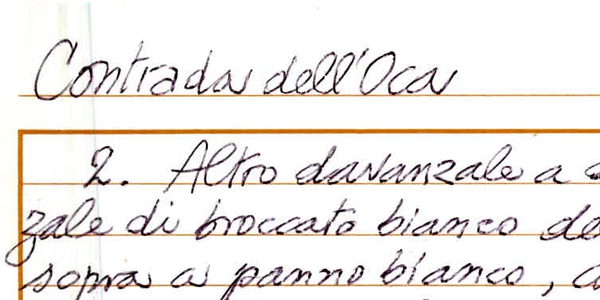 Contrada dell'Oca
2. Altro davanzale a
zale di broccato bianco de
sopra a panno bianco,